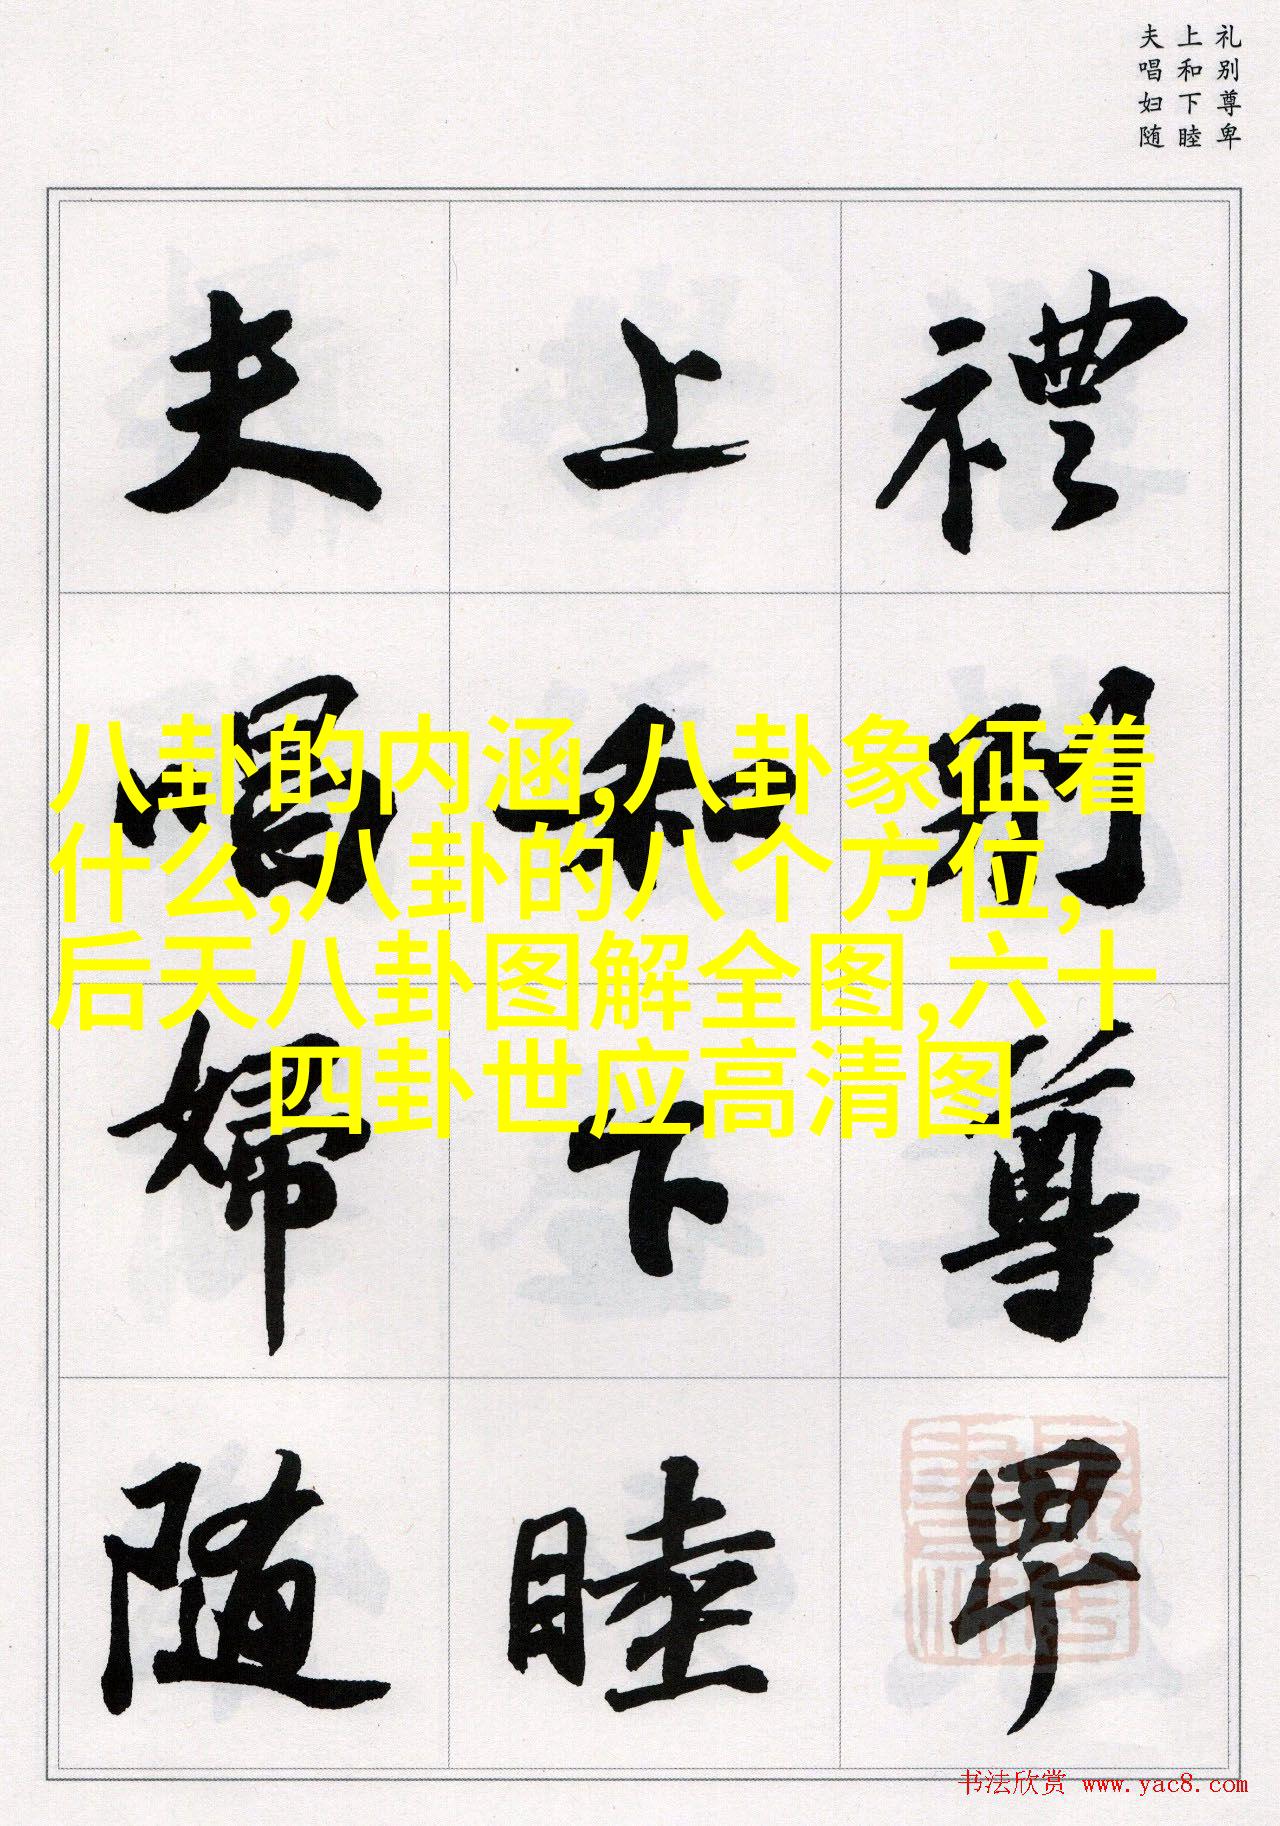 礼别尊卑
上和下睦
夫唱妇随
禮別尊卑
上和下睦
夫唱婦随
八卦的内涵,八卦象征着
什么,八卦的八个方位,
后天八卦图解全图,六十
四卦世应高清图
书法欣赏 www.yac8.com